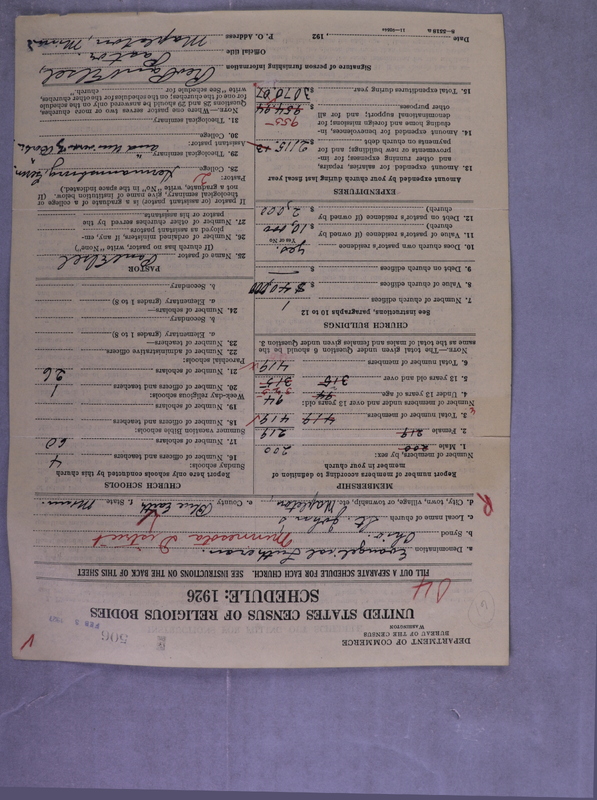 DEPARTMENT OF COMMERCE
BUREAU OF THE CENSUS
WASHINGTON
506
UNITED STATES CENSUS OF RELIGIOUS BODIES
SCHEDULE: 1926
FILL OUT A SEPARATE SCHEDULE FOR EACH CHURCH. SEE INSTRUCTIONS ON THE BACK OF THIS SHEET
a. Denomination Evangelical Lutheran.
b. Synod Ohio. Minnesota District
c. Local name of church St. John's
d. City, town, village, or township, etc. Mapleton, e. County Blue Earth f. State Minn.
MEMBERSHIP
Report number of members according to definition of member in your church
Number of members, by sex:
1. Male 200 200
2. Female 219 219
3. Total number of members. 419 419
Number of members under and over 13 years old:
4. Under 13 years of age. 94 94
5. 13 years old and over 315
6. Total number of members 419
NOTE.—The total given under Question 6 should be the same as the total of males and females given under Question 3.
CHURCH BUILDINGS
See instructions, paragraphs 10 to 12
7. Number of church edifices 1
8. Value of church edifices $ 40,000
9. Debt on church edifices $
10. Does church own pastor's residence yes.
Yes or No
11. Value of pastor's residence (if owned by church) $ 10,000
12. Debt on pastor's residence (if owned by church) $ 2,000
EXPENDITURES
Amount expended by your church during last fiscal year
13. Amount expended for salaries, repairs, and other running expenses; for improvements or new buildings; and for payments on church debt $
14. Amount expended for benevolence, including home and foreign missions; for denominational support; and for all other purposes. $ 954.94 955
15. Total expenditures during year. $ 3070.07
CHURCH SCHOOLS
Report here only schools conducted by this church
Sunday schools:
16. Number of officers and teachers 4
17. Number of scholars 60
Summer vacation Bible schools:
18. Number of officers and teachers
19. Number of scholars
Week-day religious schools:
20. Number of officers and teachers 1
21. Number of scholars 26
Parochial schools:
22. Number of administrative officers.
23. Number of teachers—
a. Elementary (grades 1 to 8)
b. Secondary
24. Number of scholars—
a. Elementary (grades 1 to 8)
b. Secondary
PASTOR
25. Name of pastor
(If church has no pastor, write "None")
26. Number of ordained ministers, if any, employed as assistant pastors.
27. Number of other churches served by the pastor or his assistants.
If pastor (or assistant pastor) is a graduate of a college or theological seminary, give name of institution below. (If not a graduate, write "NO" in the space indicated.)
Pastor:
28. College.
29. Theological seminary.
Assistant pastor:
30. College.
31. Theological seminary.
NOTE.—Where one pastor serves two or more churches, Questions 28 and 29 should be answered only on the schedule for one of the churches; on the schedules for the other churches, write "See schedule for church."
Signature of person furnishing information Rev.
Official title Pastor.
P. O. Address Mapleton, Minn.
Date , 192 .